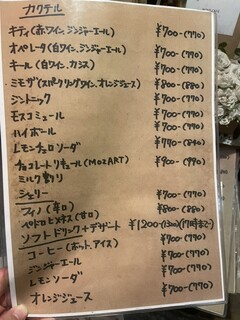 カクテル
キティ(赤ワイン、ジンジャーエール) ¥700-(770)
オペレータ(白ワイン、ジンジャーエール) ¥700-(770)
キール(白ワイン、カシス) ¥700-(770)
ミモザ(スパークリングワイン、オレンジジュース) ¥800-(880)
ジントニック ¥700-(770)
モスコミュール ¥700-(770)
ハイボール ¥700-(770)
レモンチェロソーダ ¥770-(840)
チョコレートリキュール(MOZART) ¥900-(990)
ミルク割り
シェリー ¥700-(770)
フィノ(辛口) ¥800-(880)
ペドロヒメネス(甘口)
ソフトドリンク+デザート ¥1200-(1320)(17時まで)
コーヒー(ホット、アイス) ¥700-(770)
ジンジャーエール ¥700-(770)
レモンソーダ ¥700-(770)
オレンジジュース ¥700-(770)